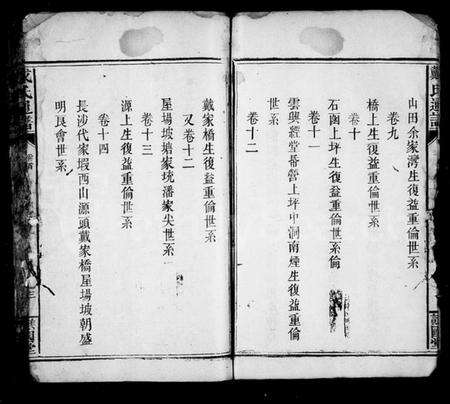 山田余家灣生復益重倫世系
卷九
橋上生復益重倫世系
卷十
石閣上坪生復益重倫世系倫
卷十一
雲興經堂番營上坪中洞南煙生復益重倫
世系
卷十二
戴家橋生復益重倫世系
又卷十二
屋場坡塘家珗潘家尖世系
卷十三
源上生復益重倫世系
卷十四
長沙代家塅西山源頭戴家橋屋場坡朝盛
明良會世系
戴氏通譜